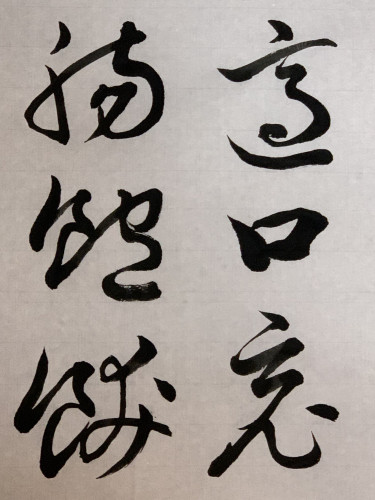 適口充
腸飽飫